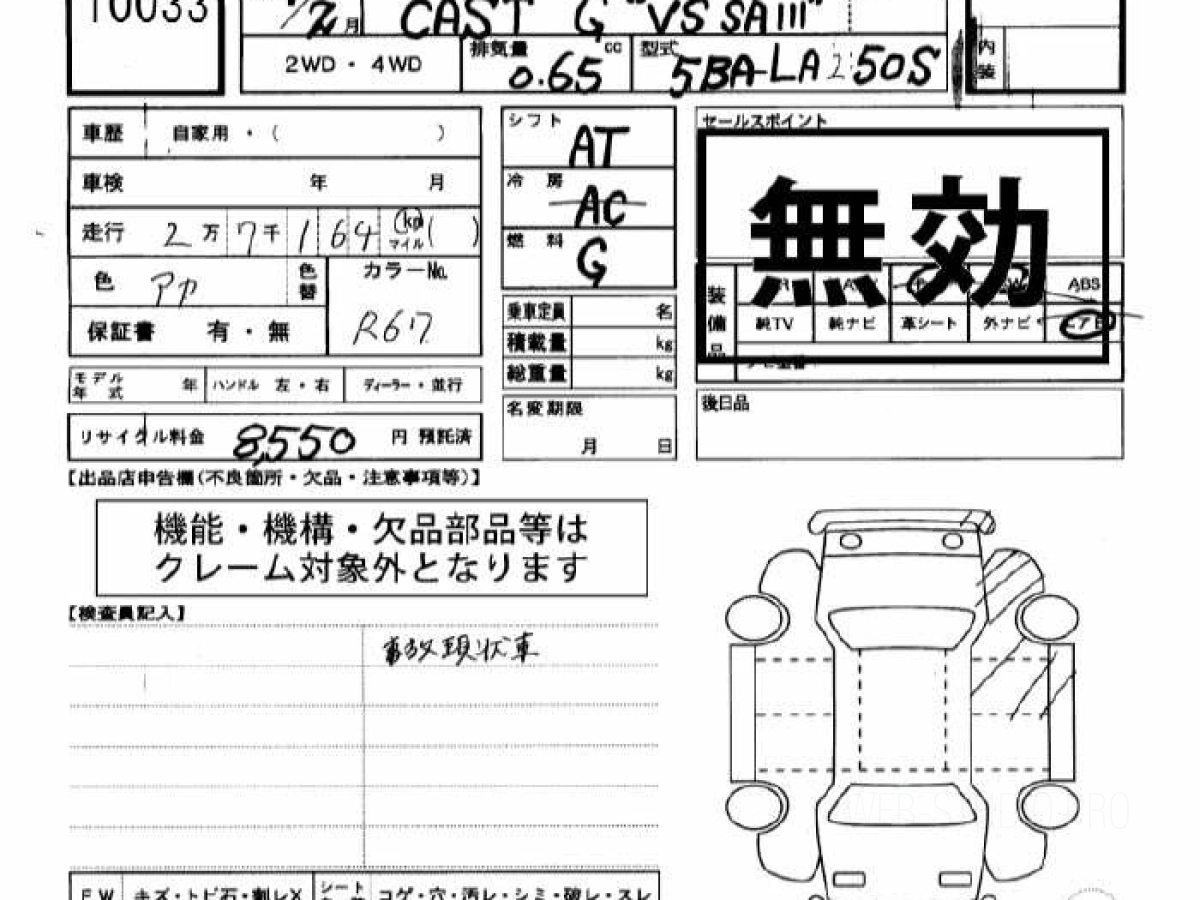 10033
月 CAST G "VS SAIII"
2WD・4WD 排気量 0.65 cc 型式 5BA-LA250S
内装
車歴 自家用・( )
車検 年 月
走行 2万7千164 km マイル ( )
色 アカ 色替
カラーNo. R67
保証書 有・無
モデル年式 年 ハンドル 左・右 ディーラー・並行
リサイクル料金 8,550 円 預託済
シフト AT
冷房 AC
燃料 G
乗車定員 名
積載量 kg
総重量 kg
名変期限 月 日
セールスポイント
無効
装備品 ABS
純TV 純ナビ 革シート 外ナビ エアB
後日品
【出品店申告欄(不良箇所・欠品・注意事項等)】
機能・機構・欠品部品等は
クレーム対象外となります
【検査員記入】
事故現状車
FW キズ・トビ石・割レX シート コゲ・穴・汚レ・シミ・破レ・スレ